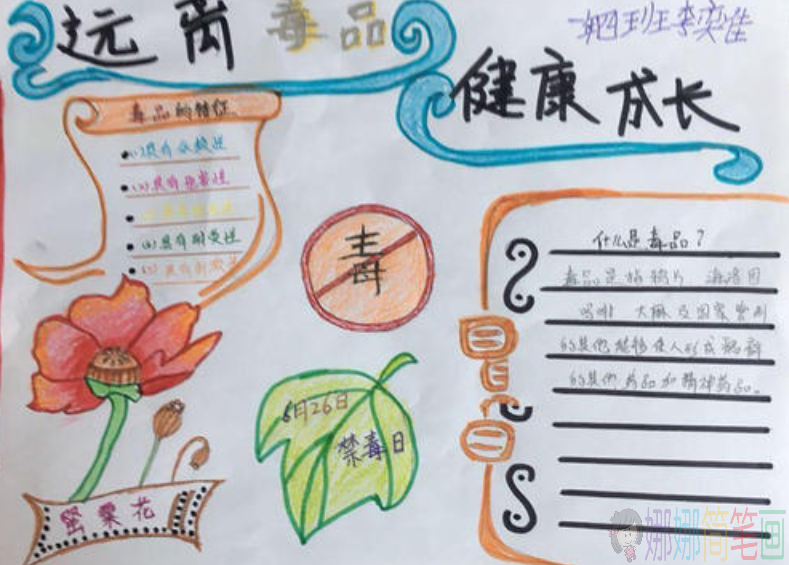 远离毒品
健康成长
毒品的特征
(1)具有依赖性
(2)具有危害性
(4)具有耐受性
毒
6月26日
禁毒日
罂粟花
什么是毒品？
毒品是指鸦片 海洛因
吗啡 大麻及国家管制
的其他能够使人形成瘾癖
的其他药品和精神药品。
娜娜简笔画